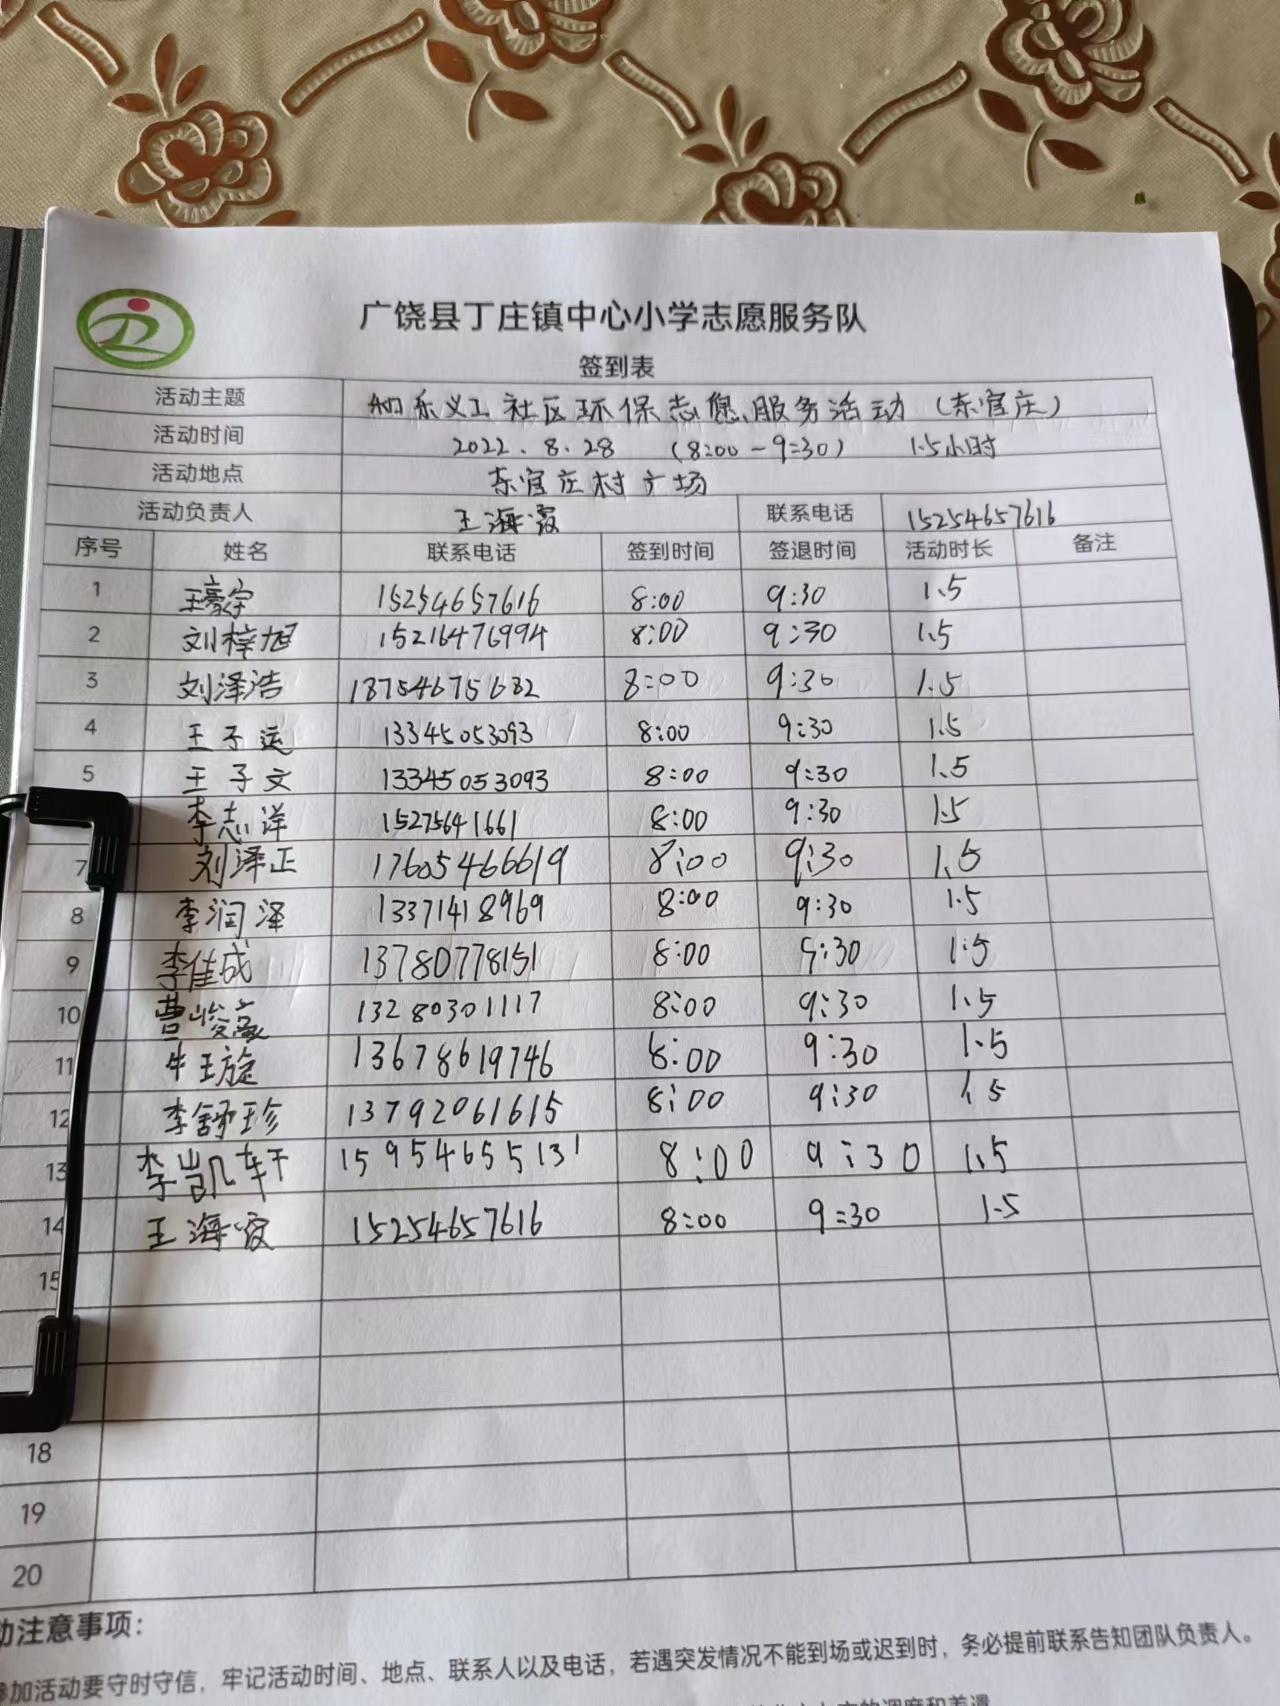 广饶县丁庄镇中心小学志愿服务队
签到表
活动主题 知乐义工社区环保志愿服务活动（东官庄）
活动时间 2022.8.28 （8:00-9:30） 1.5小时
活动地点 东官庄村广场
活动负责人 王海霞 联系电话 15254657616
序号 姓名 联系电话 签到时间 签退时间 活动时长 备注
1 王豪宇 15254657616 8:00 9:30 1.5
2 刘梓旭 15216476994 8:00 9:30 1.5
3 刘泽浩 18754675682 8:00 9:30 1.5
4 王子运 13345053093 8:00 9:30 1.5
5 王子文 13345053093 8:00 9:30 1.5
李志洋 15275641661 8:00 9:30 1.5
7 刘泽正 17605466619 8:00 9:30 1.5
8 李润泽 13371418969 8:00 9:30 1.5
9 李佳成 13780778151 8:00 9:30 1.5
10 曹峻豪 13280301117 8:00 9:30 1.5
11 牛玉旋 13678619746 8:00 9:30 1.5
12 李舒珍 13792061615 8:00 9:30 1.5
13 李凯轩 15954655131 8:00 9:30 1.5
14 王海霞 15254657616 8:00 9:30 1.5
15
18
19
20
动注意事项：
参加活动要守时守信，牢记活动时间、地点、联系人以及电话，若遇突发情况不能到场或迟到时，务必提前联系告知团队负责人。